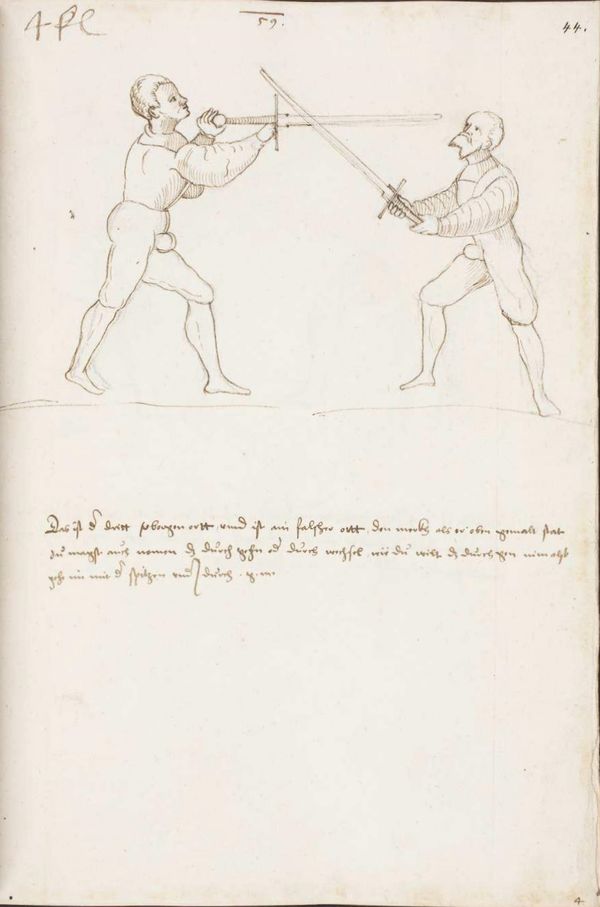 59.
44.
Das ist d dritt verborgen ortt vnnd ist ain falscher ortt den merck also er oben gemalt stat
du magst auch nemen dz durch gehn od durch wechsel wie du wilt dz durch gen nim also
geh im mit d spitzen vnd durch
4